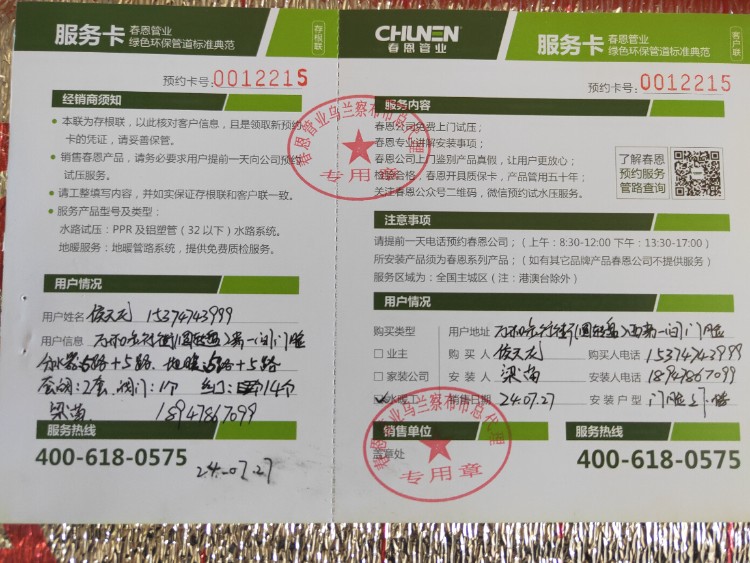 服务卡 春恩管业
绿色环保管道标准典范
存根联
预约卡号:0012215
经销商须知
本联为存根联,以此核对客户信息,且是领取新预约
卡的凭证,请妥善保管。
销售春恩产品,请务必要求用户提前一天向公司预约
试压服务。
请工整填写内容,并如实保证存根联和客户联一致。
服务产品型号及类型:
水路试压:PPR 及铝塑管(32 以下)水路系统。
地暖服务:地暖管路系统,提供免费质检服务。
用户情况
用户姓名 15374743999
用户信息
5路+5路 地暖 5路+5路
2套 阀门:1个 14个
梁苗 18947867099
服务热线
400-618-0575 24-07.27
CHUNEN
春恩管业
服务卡 春恩管业
绿色环保管道标准典范
客户联
预约卡号:0012215
服务内容
春恩公司免费上门试压;
春恩专业讲解安装事项;
春恩公司上门鉴别产品真假,让用户更放心;
检验合格,春恩开具质保卡,产品管用五十年;
关注春恩公众号二维码,微信预约试水压服务。
了解春恩
预约服务
管路查询
春恩管业乌兰察布市总代理
专用章
注意事项
请提前一天电话预约春恩公司;(上午:8:30-12:00 下午:13:30-17:00)
所安装产品须为春恩系列产品;(如有其它品牌产品春恩公司不提供服务)
服务区域为:全国主城区(注:港澳台除外)
用户情况
购买类型 用户地址
□业主 购买人 购买人电话 15374743999
□家装公司 安装人 梁苗 安装人电话 18947867099
水暖工 销售日期 24.07.27 安装户型
销售单位
盖章处
春恩管业乌兰察布市总代理
专用章
服务热线
400-618-0575